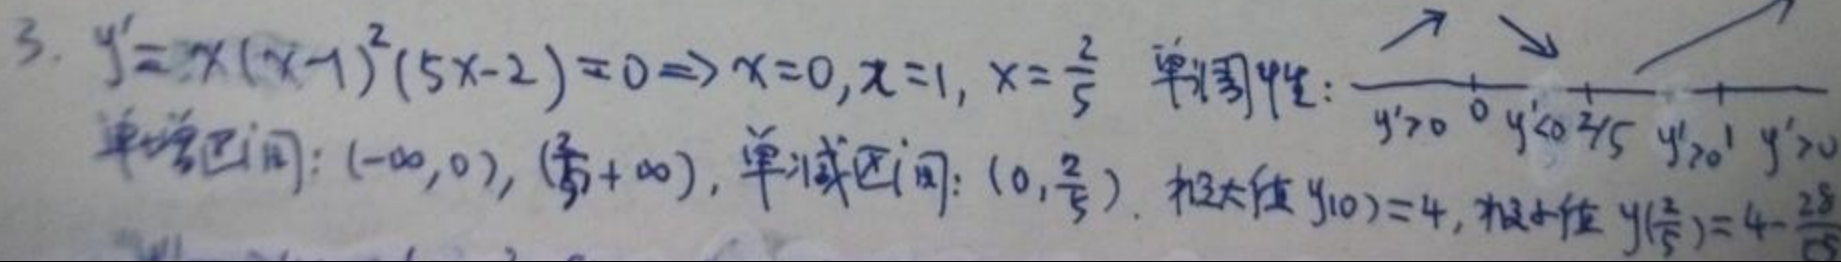 3. y'=x(x-1)²(5x-2)=0=>x=0,x=1, x=2/5 单调性: y'>0 0 y'<0 2/5 y'>0 1 y'>0
单增区间: (-∞,0), (2/5,+∞), 单减区间: (0,2/5). 极大值 y(0)=4, 极小值 y(2/5)=4-